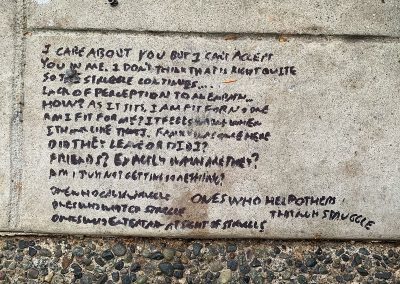 I CARE ABOUT YOU BUT I CAN'T ACCEPT
YOU IN ME. I DON'T THINK THAT IS RIGHT QUITE
SO THE STRUGGLE CONTINUES....
LACK OF PERCEPTION TO AN EMPATH..
HOW? AS IT FITS, I AM FIT FOR NO ONE
AM I FIT FOR ME? IT FEELS WHEN
I THINK LIKE THAT. HERE
DID THEY LEAVE OR DID I?
FRIENDS? EXACTLY WHO ARE THEY?
AM I NOT GETTING SOMETHING?
ONES WHO STRUGGLE
ONES WHO WATCH STRUGGLE
ONES WHO AT SIGHT OF STRUGGLE
ONES WHO HELP OTHERS
THROUGH STRUGGLE